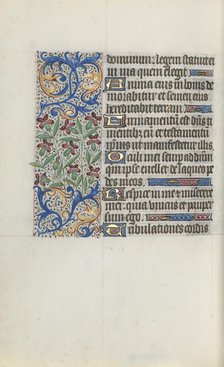 dominum: legem statuit ei
in via quem elegit
Anima eius in bonis de
morabitur et semen eius
hereditabit terram
Firmamentum est dñs ti
mentibꝫ eum et testamentū
ipsius ut manifestetur illis
Oculi mei semp ad dñm
qm̄ ipse euellet de laqueo pe
des meos
Respice in me et miserere
mei: quia vnicus et pauper
sum ego
Tribulationes cordis